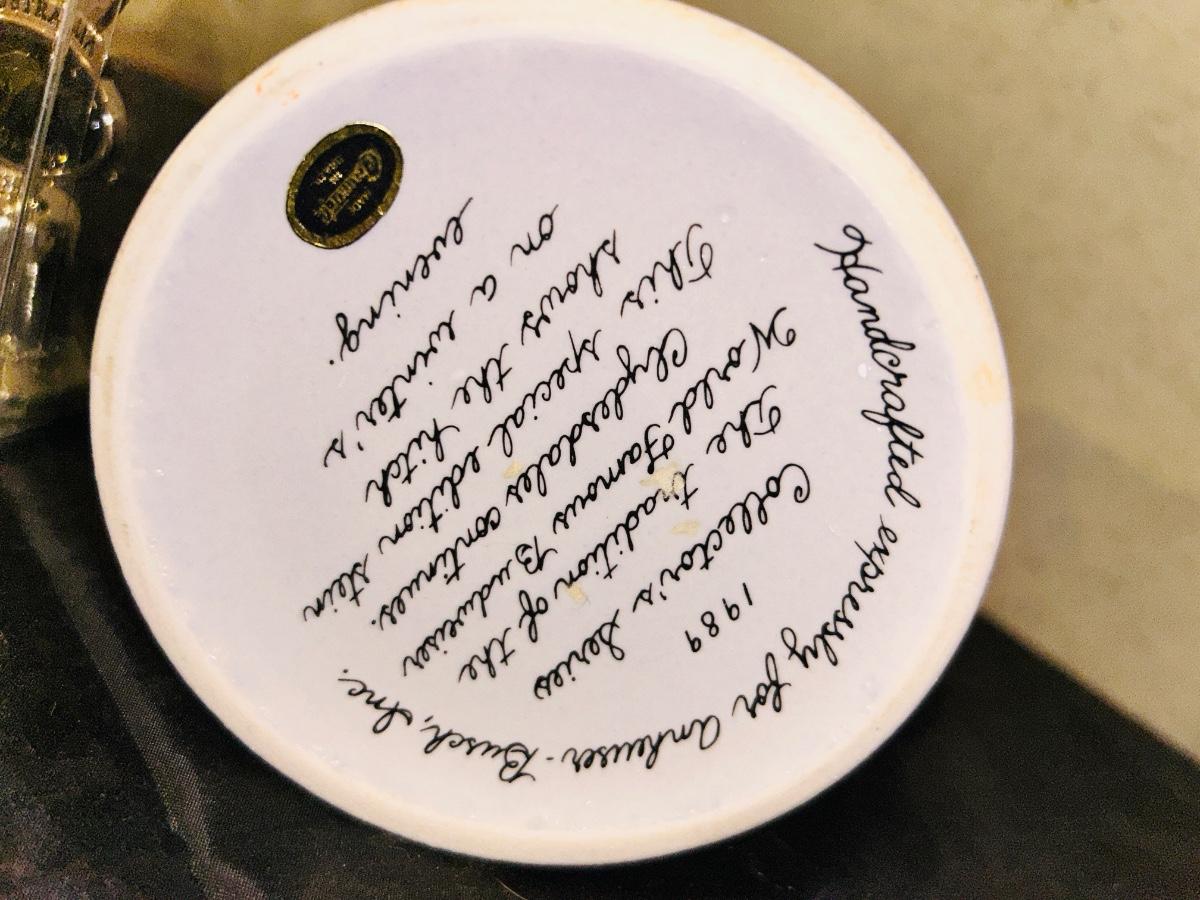 Handcrafted expressly for Anheuser-Busch, Inc.
1989
Collector's Series
The tradition of the
World Famous Budweiser
Clydesdales continues.
This special edition stein
shows the hitch
on a winter's
evening.
MADE
IN